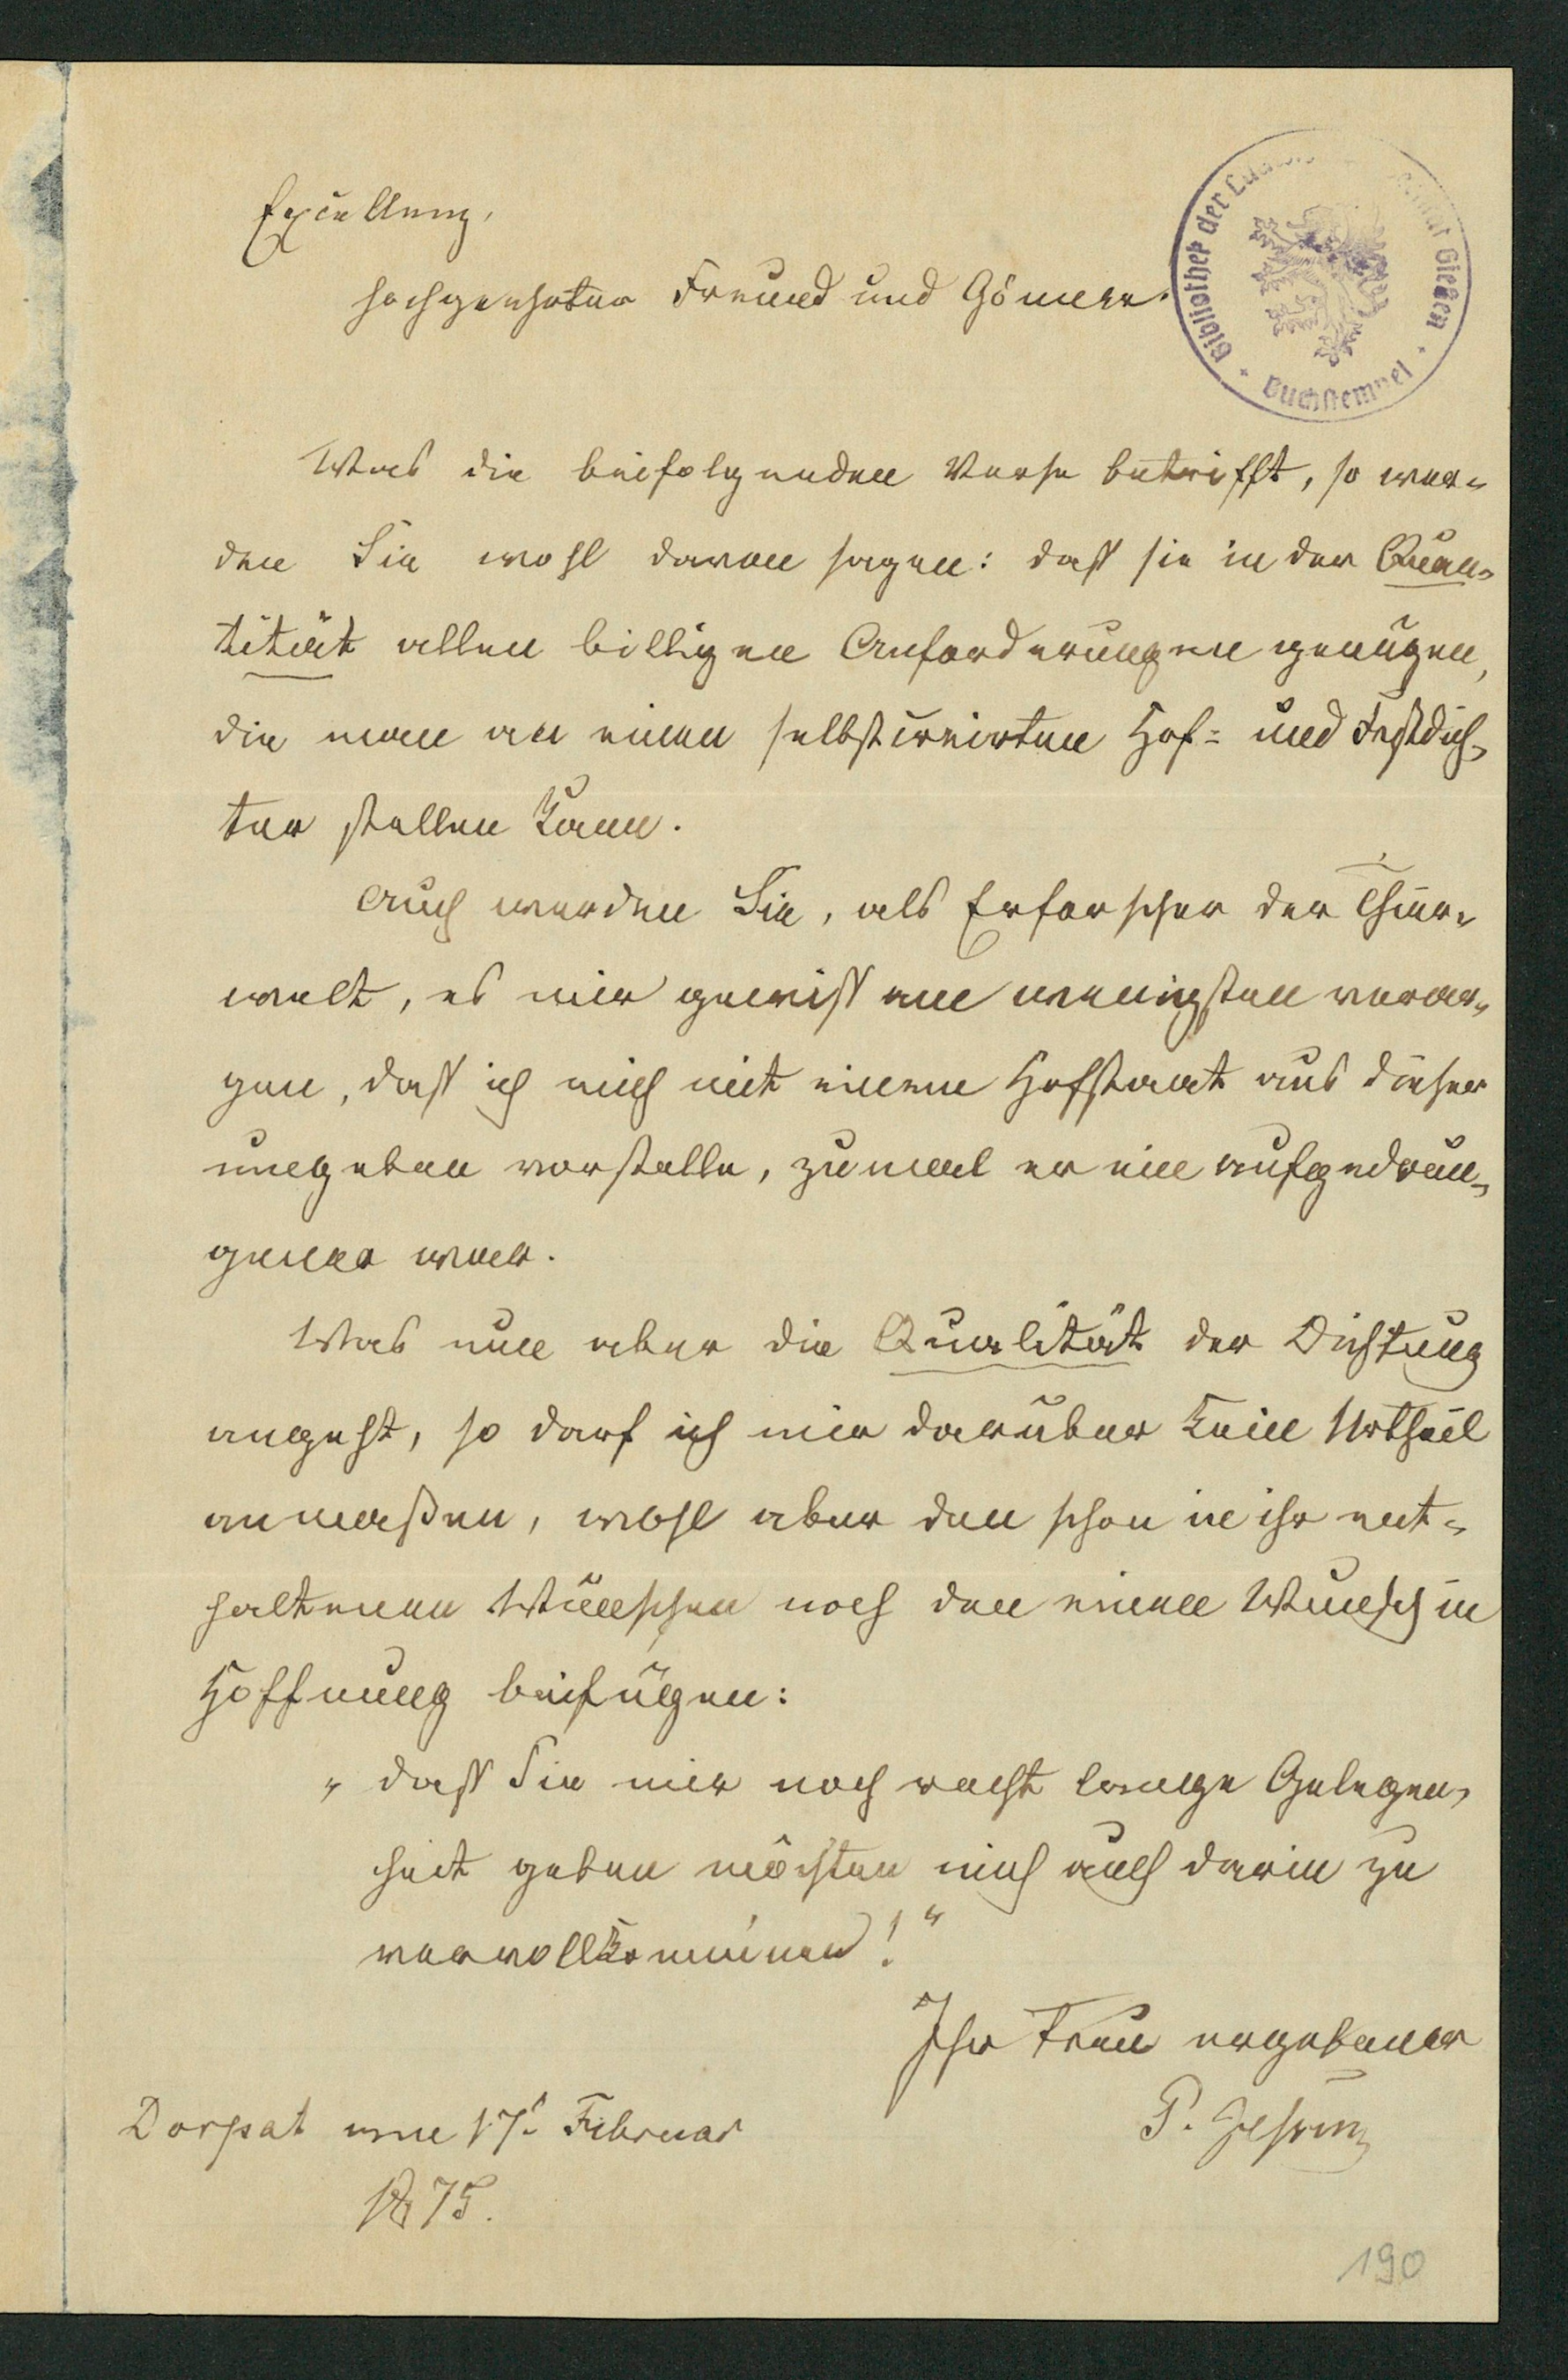 Excellenz,
hochgeehrter Freund und Gönner.
Bibliothek der Giessen
Buchstempel
Was die beifolgenden Verse betrifft, so wer-
den Sie wohl davon sagen: daß sie in der Quan-
tität allen billigen Anforderungen genügen,
die man an einen selbstcreirten Hof- und Festdich-
ter stellen kann.
Auch werden Sie, als Erforscher der Thier-
welt, es mir gewiß am wenigsten verar-
gen, daß ich mich mit einem Hofstaat aus dieser
umgeben vorstelle, zumal er ein aufgedrun-
gener war.
Was nun aber die Qualität der Dichtung
angeht, so darf ich mir darüber kein Urtheil
anmaßen, wohl aber den schon in ihr ent-
haltenen Wünschen noch den einen Wunsch in
Hoffnung beifügen:
"daß Sie mir noch recht lange Gelegen-
heit geben möchten mich auch darin zu
vervollkommnen!"
Ihr treu ergebener
Dorpat am 17. Februar
P.
1875.
190